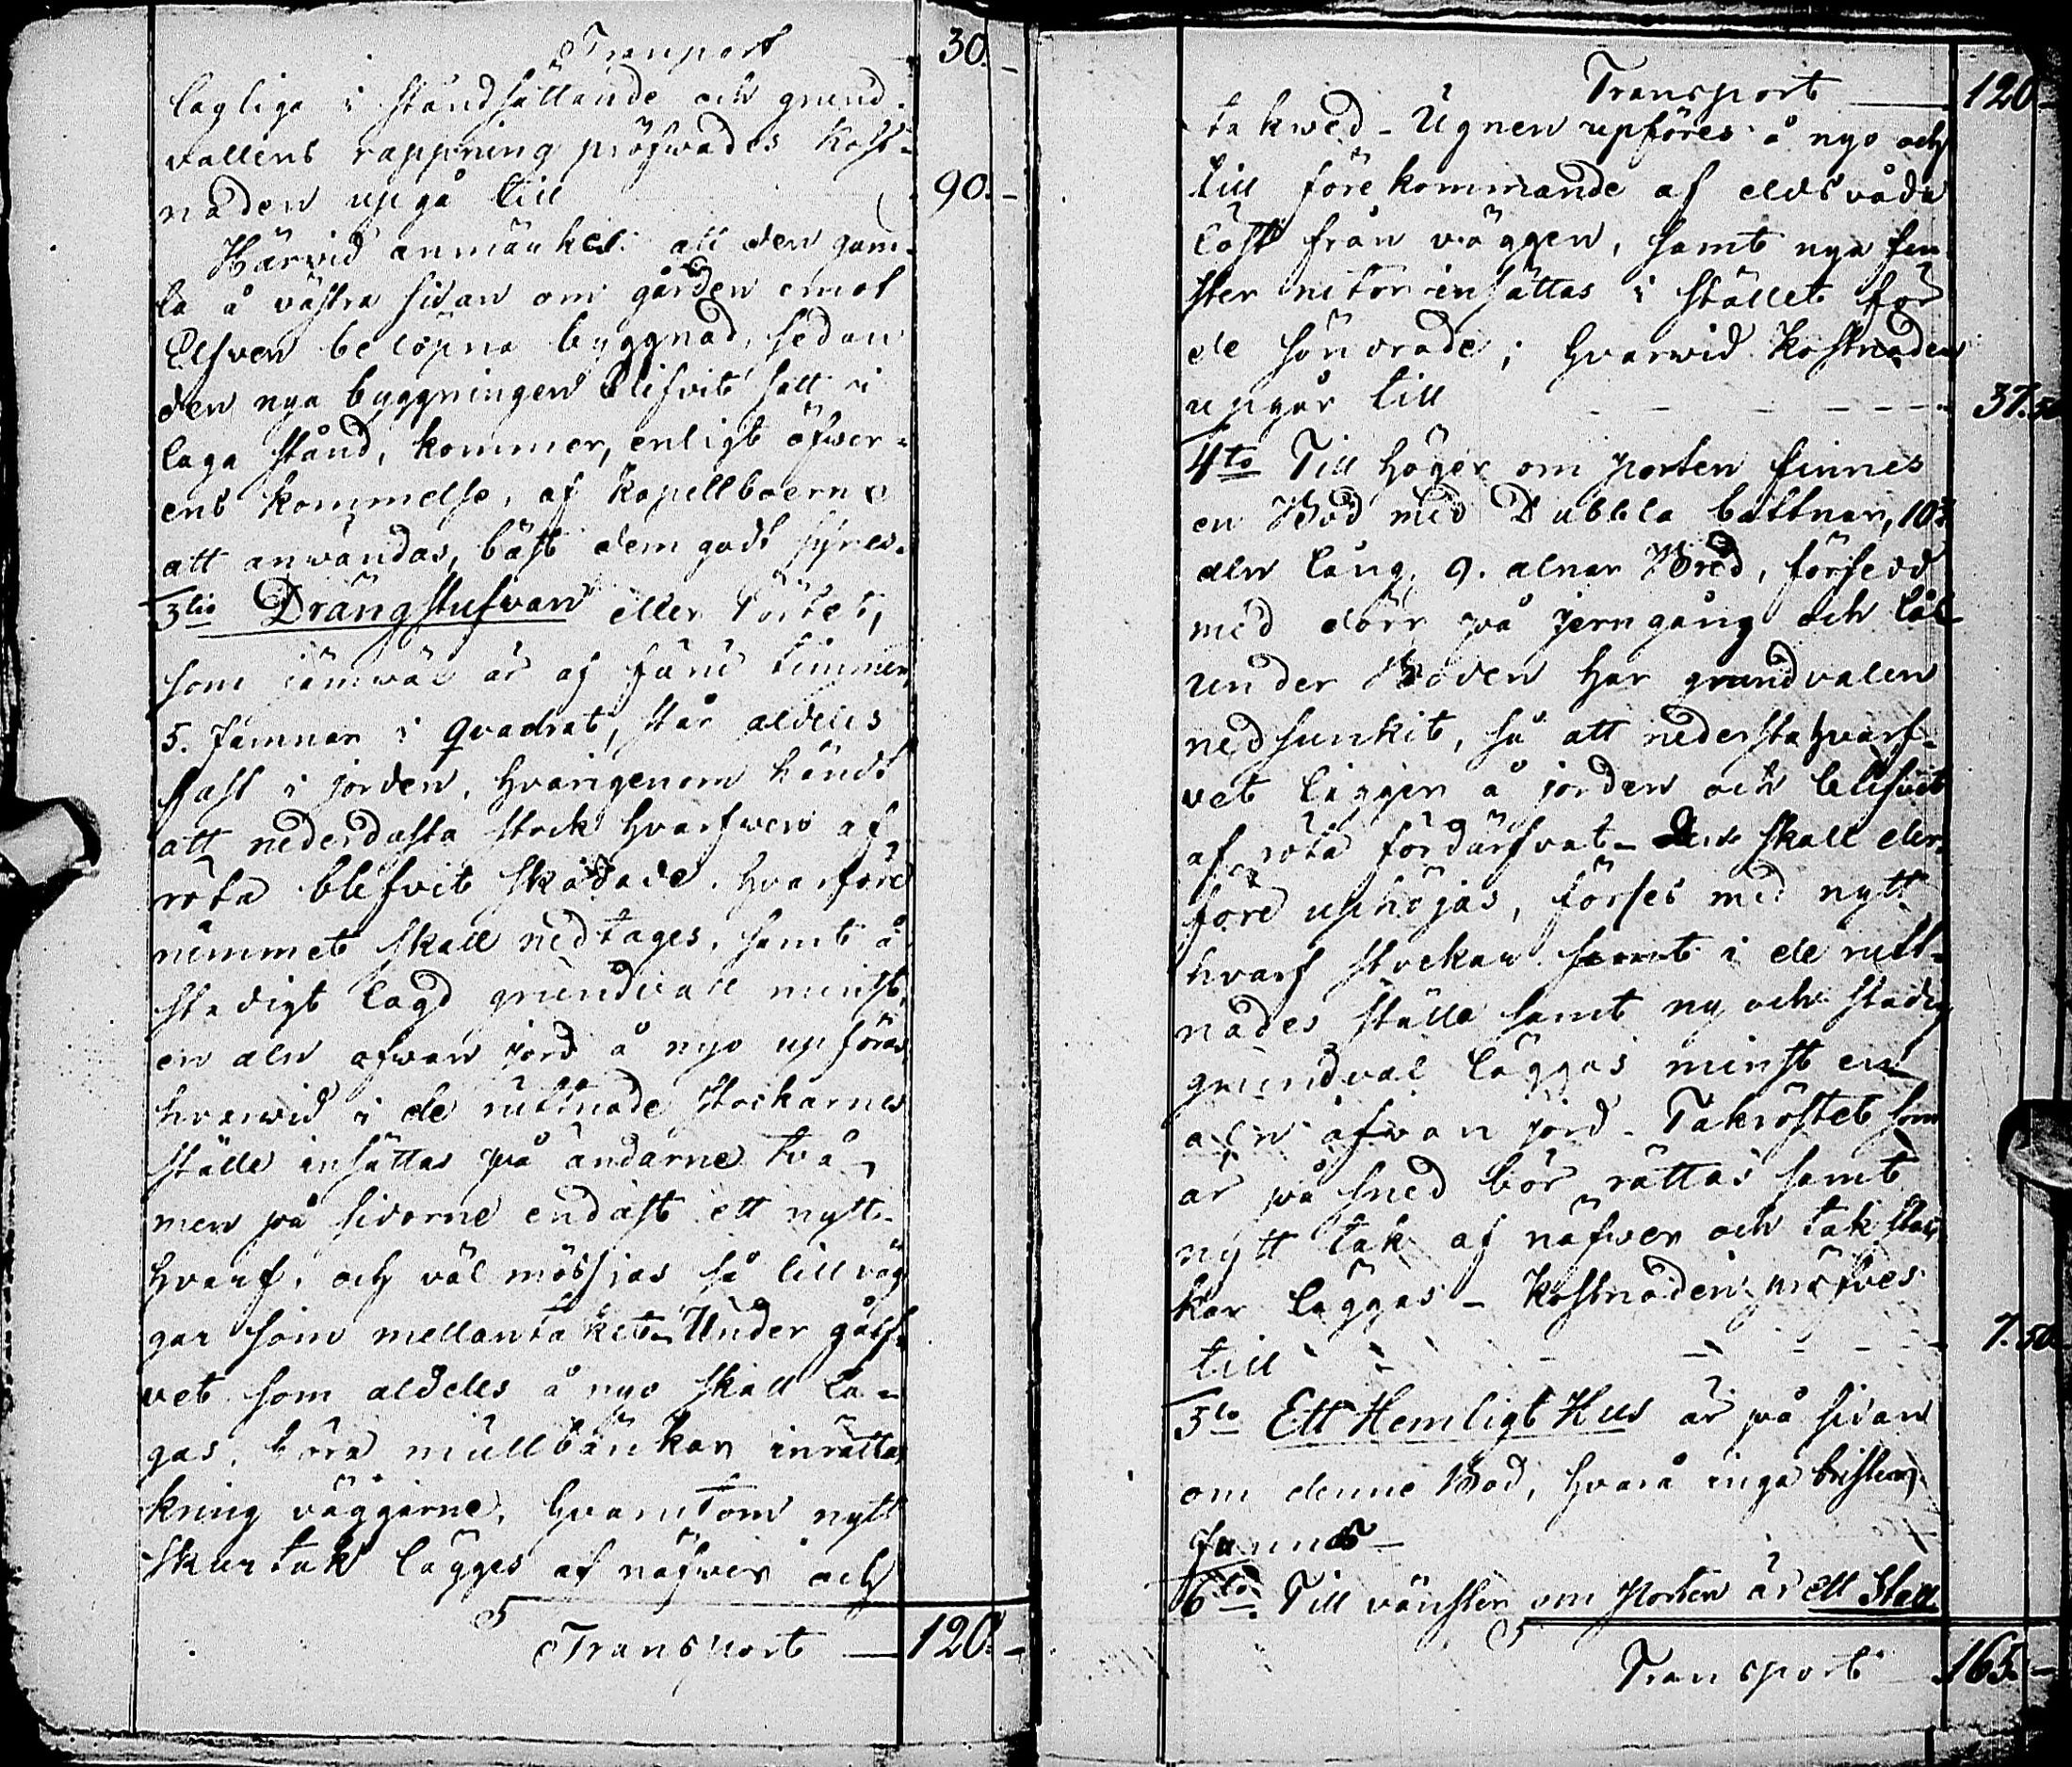 Transport 30. -
lagliga i ståndsättande och grund-
vallens rappning pröfwades Kost-
naden upgå till 90. -
Härvid anmärkes: att den gam-
la å västra sidan om gården emot
Elfven belöpna byggnad, sedan
den nya byggningen blifvit satt i
laga stånd, kommer, enligt öfwer-
ens kommelse, af Kapellboerne
att anwändas, bäst dem godt synes.
3tio Drängstufvan eller Pörtet,
som jämwäl är af furu timmer,
5. famnar i Qvadrat, står aldeles
fast i jorden, hvarigenom händt
att nedersta stock hvarfwen af
röta blifvit skadade. hvarföre
rummet skall nedtages, samt å
stadigt lagd grundvall minst
en aln ofwan jord å nyo upföras
hvarwid i de rutnade stockarnes
ställe insättas på ändarne två,
men på sidorne endast ett nytt
hvarf, och väl måssjas så till väg-
gar som mellantaket. Under golf-
vet som aldeles å nyo skall la-
gas, böra mullbänkar inrättas
kring väggarne, hvarutom nytt
skurtak lägges af näfwer och
Transport — 120. -
Transport — 120 -
takwed - Ugnen upföres å nyo och
till förekommande af eldsvåda
löst från väggen, samt nya fen-
ster rutor insättas i stället för
de söndrade; hvarwid Kostnaden
upgår till - - - - 37.50
4to Till höger om porten finnes
en Bod med Dubbla bottnar, 10½
aln lång, 9. alnar Bred, försedd
med dörr på jerngång och lås
under Boden har grundvalen
nedsunkit, så att nedersta hvarf-
vet ligger å jorden och blifvit
af röta fördärfvat - Den skall der-
före uphöjas, förses med nytt
hvarf stockar samt i de rutt-
nades ställe samt ny och stadig
grundval läggas minst en
aln ofwan jord - Takröstet som
är på sned bör rättas samt
nytt tak af näfwer och takstäc-
kar läggas - Kostnaden pröfves
till - - - - 7.50
5to Ett Hemligt Hus är på sidan
om denne Bod, hvarå inga brister
funnos -
6to Till vänster om Porten är ett Stall
Transport 165. -